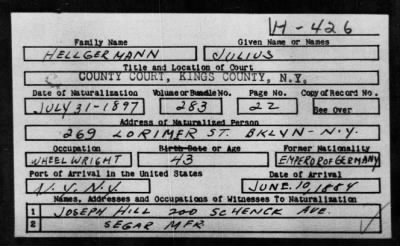 H-426
Family Name Given Name or Names
HELLGERMANN JULIUS
Title and Location of Court
COUNTY COURT, KINGS COUNTY, N.Y.
Date of Naturalization Volume or Bundle No. Page No. Copy of Record No.
JULY 31-1897 283 22 See Over
Address of Naturalized Person
269 LORIMER ST. BKLYN-N.Y.
Occupation Birth Date or Age Former Nationality
WHEELWRIGHT 43 EMPEROR OF GERMANY
Port of Arrival in the United States Date of Arrival
N.Y. N.Y. JUNE. 10, 1884
Names, Addresses and Occupations of Witnesses To Naturalization
1 JOSEPH HILL 200 SCHENCK AVE.
2 SEGAR MFR